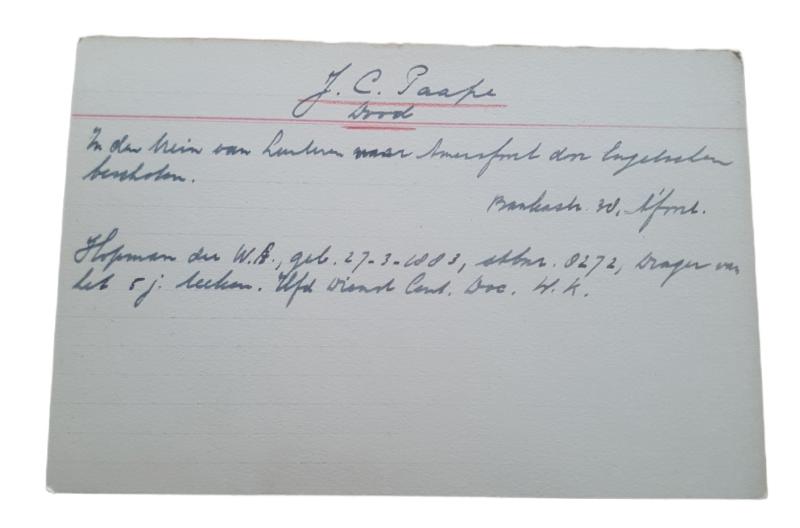 J. C. Paape
Dood
In den trein van Lunteren naar Amersfoort door Engelschen
beschoten.
Bankastr. 30, A'foort.
Hopman der W.A., geb. 27-3-1883, stbnr. 8272, Drager van
het 5 j. teeken. Hfd Dienst Cent. Doc. W.K.